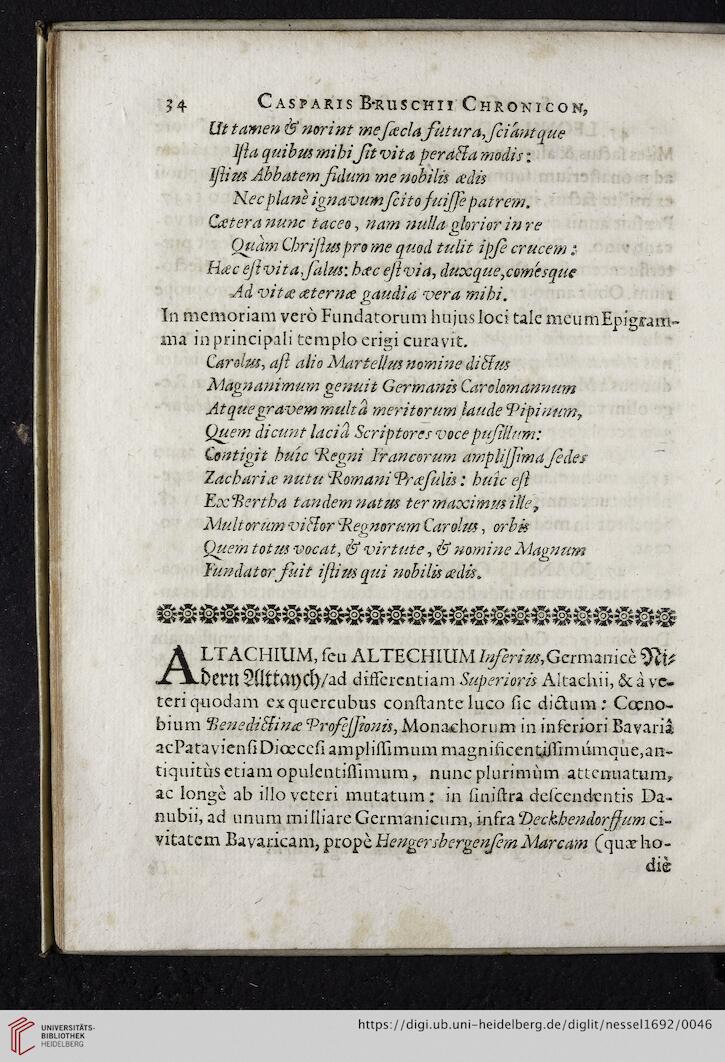 34 CASPARIS BRUSCHII CHRONICON,
Ut tamen & norint me sæcla futura, sciántque
Ista quibus mihi sit vita peracta modis:
Istius Abbatem fidum me nobilis ædis
Nec planè ignavum scito fuisse patrem.
Cætera nunc taceo, nam nulla glorior in re
Quàm Christus pro me quod tulit ipse crucem:
Hæc est vita, salus: hæc est via, duxque, comésque
Ad vitæ æternæ gaudia vera mihi.
In memoriam verò Fundatorum hujus loci tale meum Epigram-
ma in principali templo erigi curavit.
Carolus, ast alio Martellus nomine dictus
Magnanimum genuit Germanis Carolomannum
Atque gravem multâ meritorum laude Pipinum,
Quem dicunt laciâ Scriptores voce pusillum:
Contigit huic Regni Francorum amplissima sedes
Zachariæ nutu Romani Præsulis: huic est
Ex Bertha tandem natus ter maximus ille,
Multorum victor Regnorum Carolus, orbis
Quem totus vocat, & virtute, & nomine Magnum
Fundator fuit istius qui nobilis ædis.
ALTACHIUM, seu ALTECHIUM Inferius, Germanicè Ni-
dern Alttaych/ad differentiam Superioris Altachii, & à ve-
teri quodam ex quercubus constante luco sic dictum: Cœno-
bium Benedictinæ Professionis, Monachorum in inferiori Bavariâ
ac Pataviensi Diœcesi amplissimum magnificentissimúmque, an-
tiquitùs etiam opulentissimum, nunc plurimùm attenuatum,
ac longè ab illo veteri mutatum: in sinistra descendentis Da-
nubii, ad unum milliare Germanicum, infra Deckhendorffum ci-
vitatem Bavaricam, propè Hengersbergensem Marcam (quæ ho-
diè
UNIVERSITÄTS-
BIBLIOTHEK
HEIDELBERG
https://digi.ub.uni-heidelberg.de/diglit/nessel1692/0046